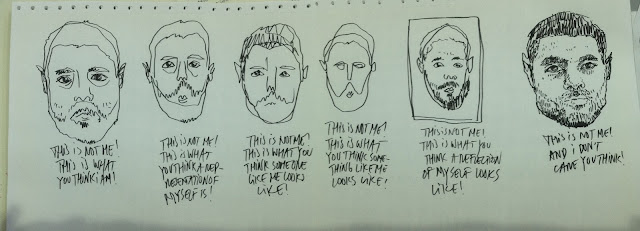 THIS IS NOT ME!
THIS IS WHAT
YOU THINK I AM!
THIS IS NOT ME!
THIS IS WHAT
YOU THINK A REP-
RESENTATION OF
MYSELF IS!
THIS IS NOT ME!
THIS IS WHAT YOU
THINK SOMEONE
LIKE ME LOOKS
LIKE!
THIS IS NOT ME!
THIS IS WHAT
YOU THINK SOME-
THING LIKE ME
LOOKS LIKE!
THIS IS NOT ME!
THIS IS WHAT YOU
THINK A REFLECTION
OF MYSELF LOOKS
LIKE!
THIS IS NOT ME!
AND i DON'T
CARE YOU THINK!